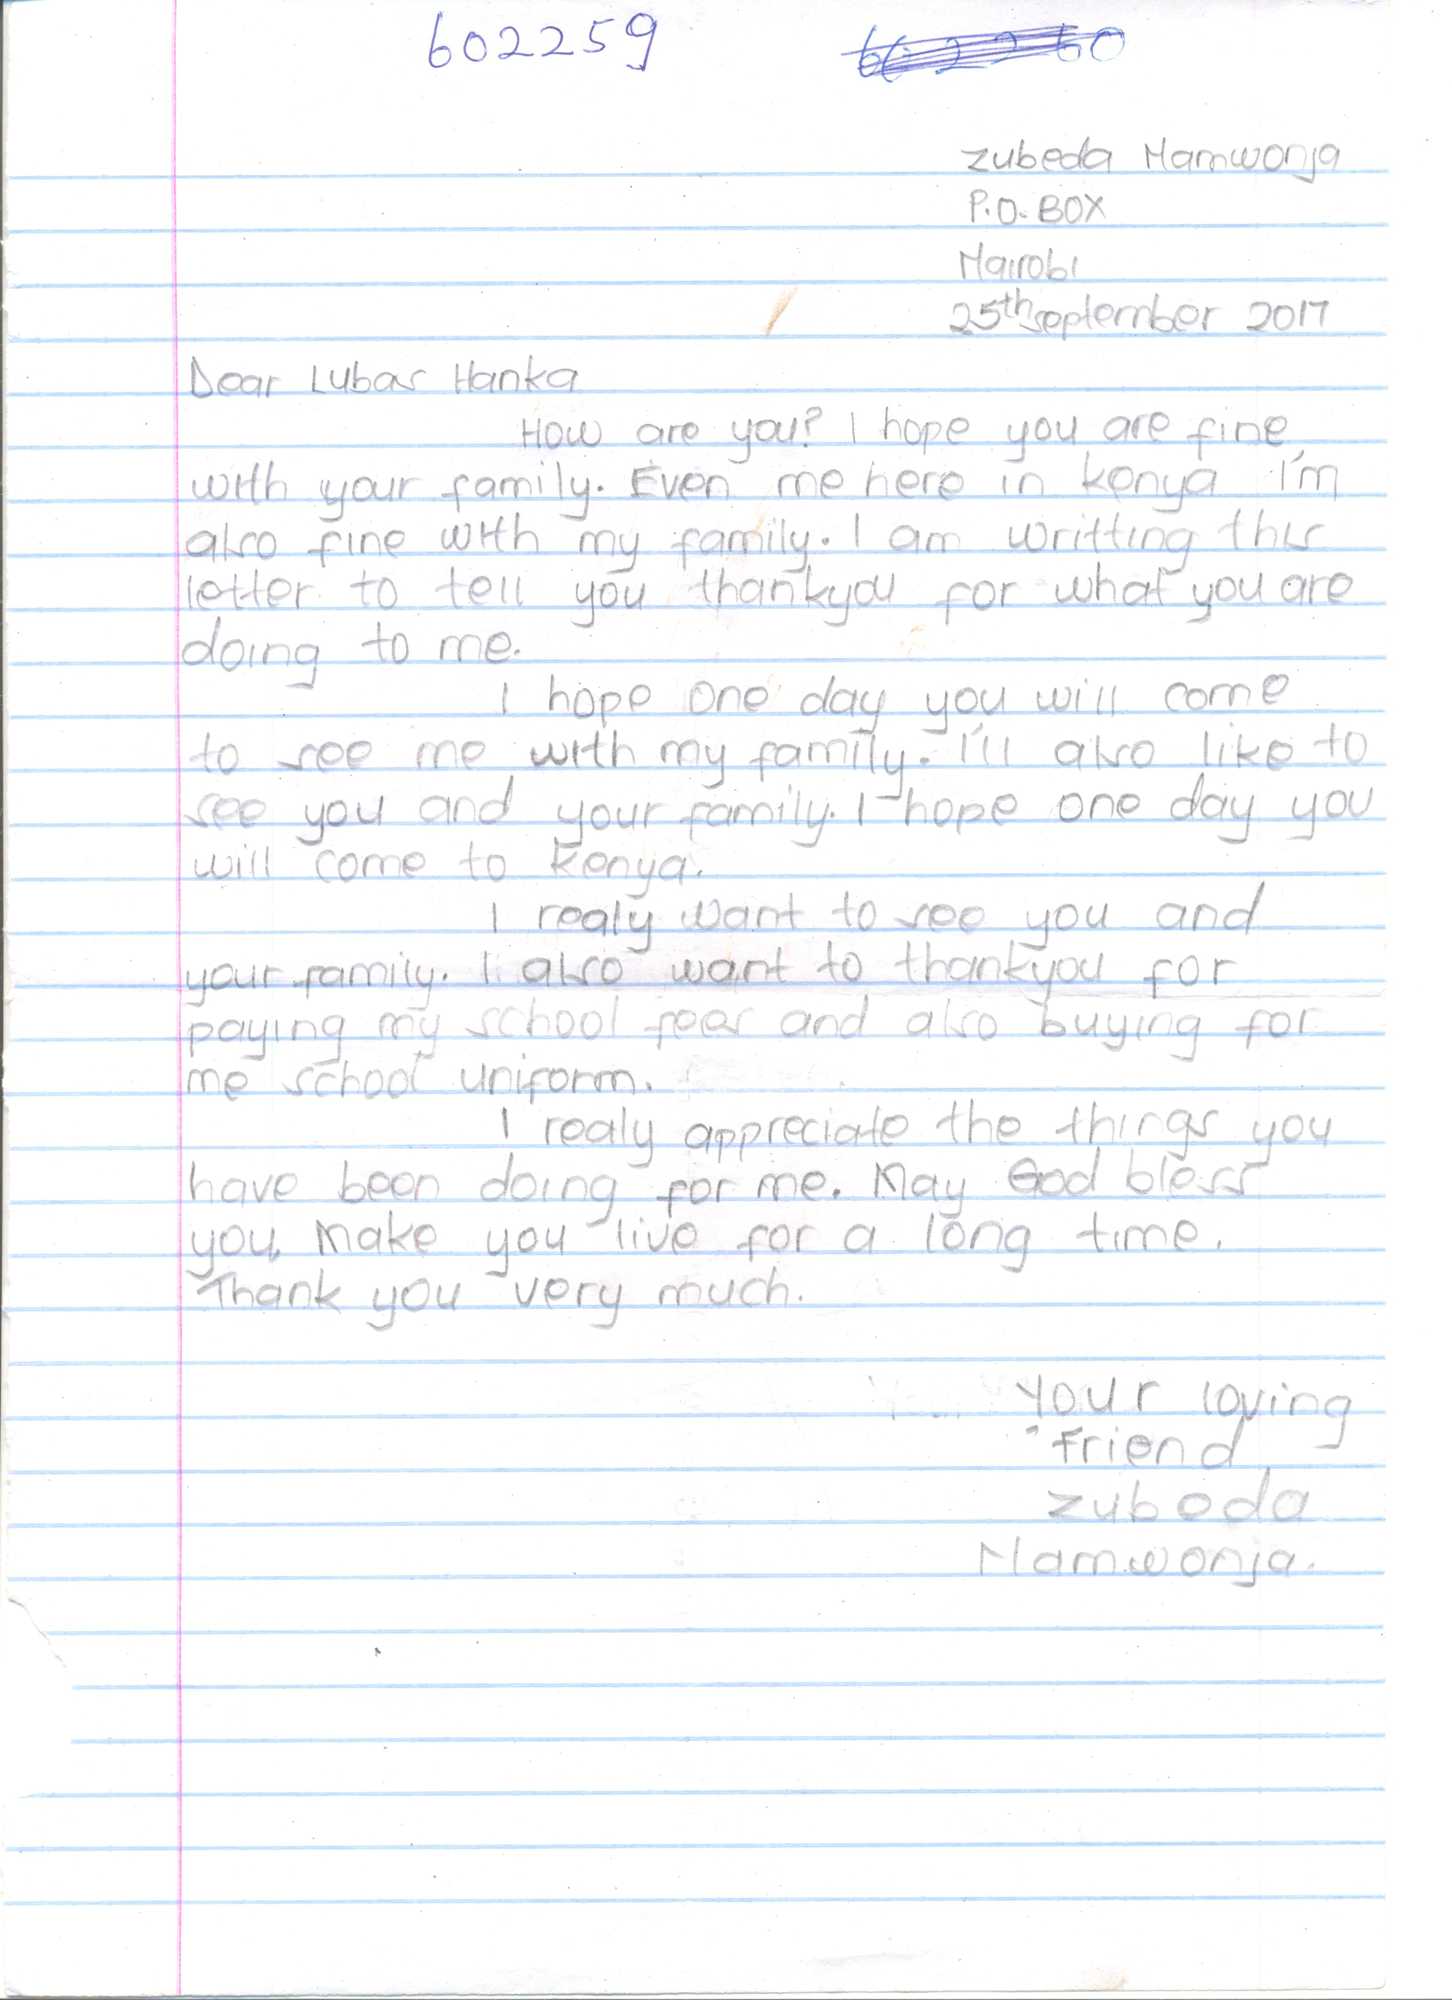 602259
Zubeda Namwonja
P.O. BOX
Nairobi
25th september 2017
Dear Lubas Hanka
How are you? I hope you are fine
with your family. Even me here in kenya I'm
also fine with my family. I am writting this
letter to tell you thankyou for what you are
doing to me.
I hope one day you will come
to see me with my family. I'll also like to
see you and your family. I hope one day you
will come to kenya.
I realy want to see you and
your family. I also want to thankyou for
paying my school fees and also buying for
me school uniform.
I realy appreciate the things you
have been doing for me. May God bless
you, Make you live for a long time.
Thank you very much.
Your loving
friend
Zubeda
Namwonja.